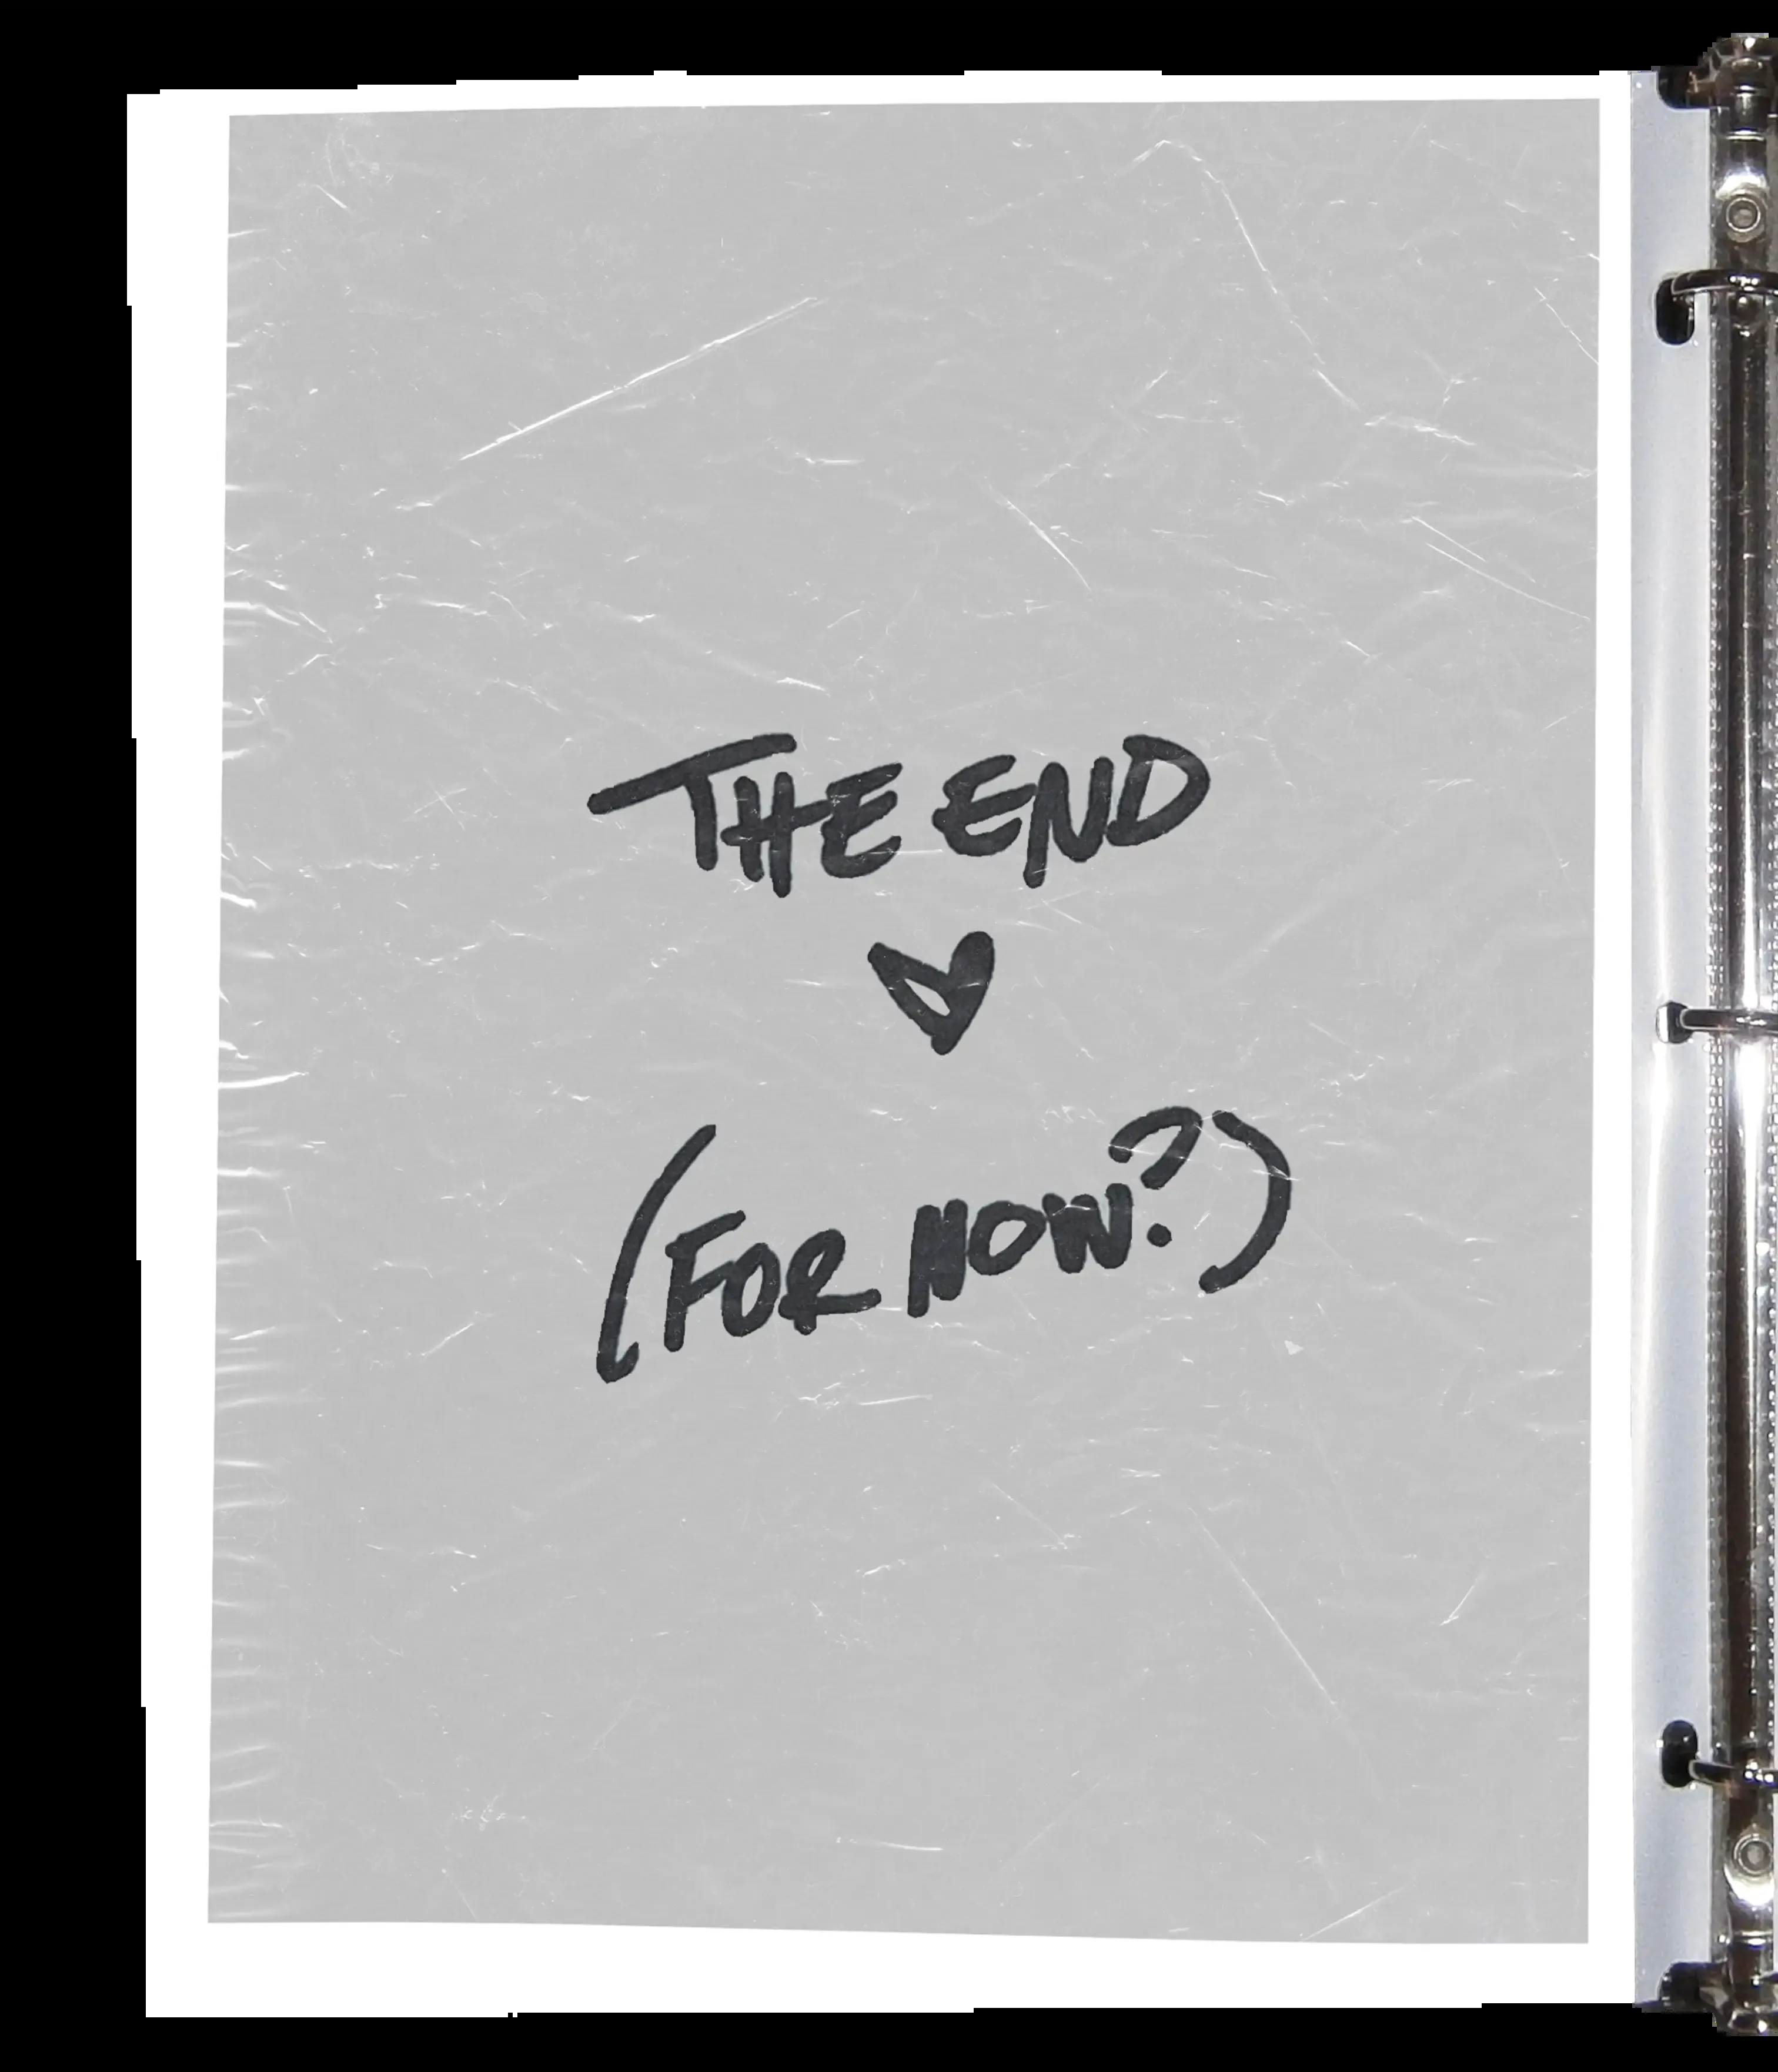 THE END
♥
(FOR NOW?)